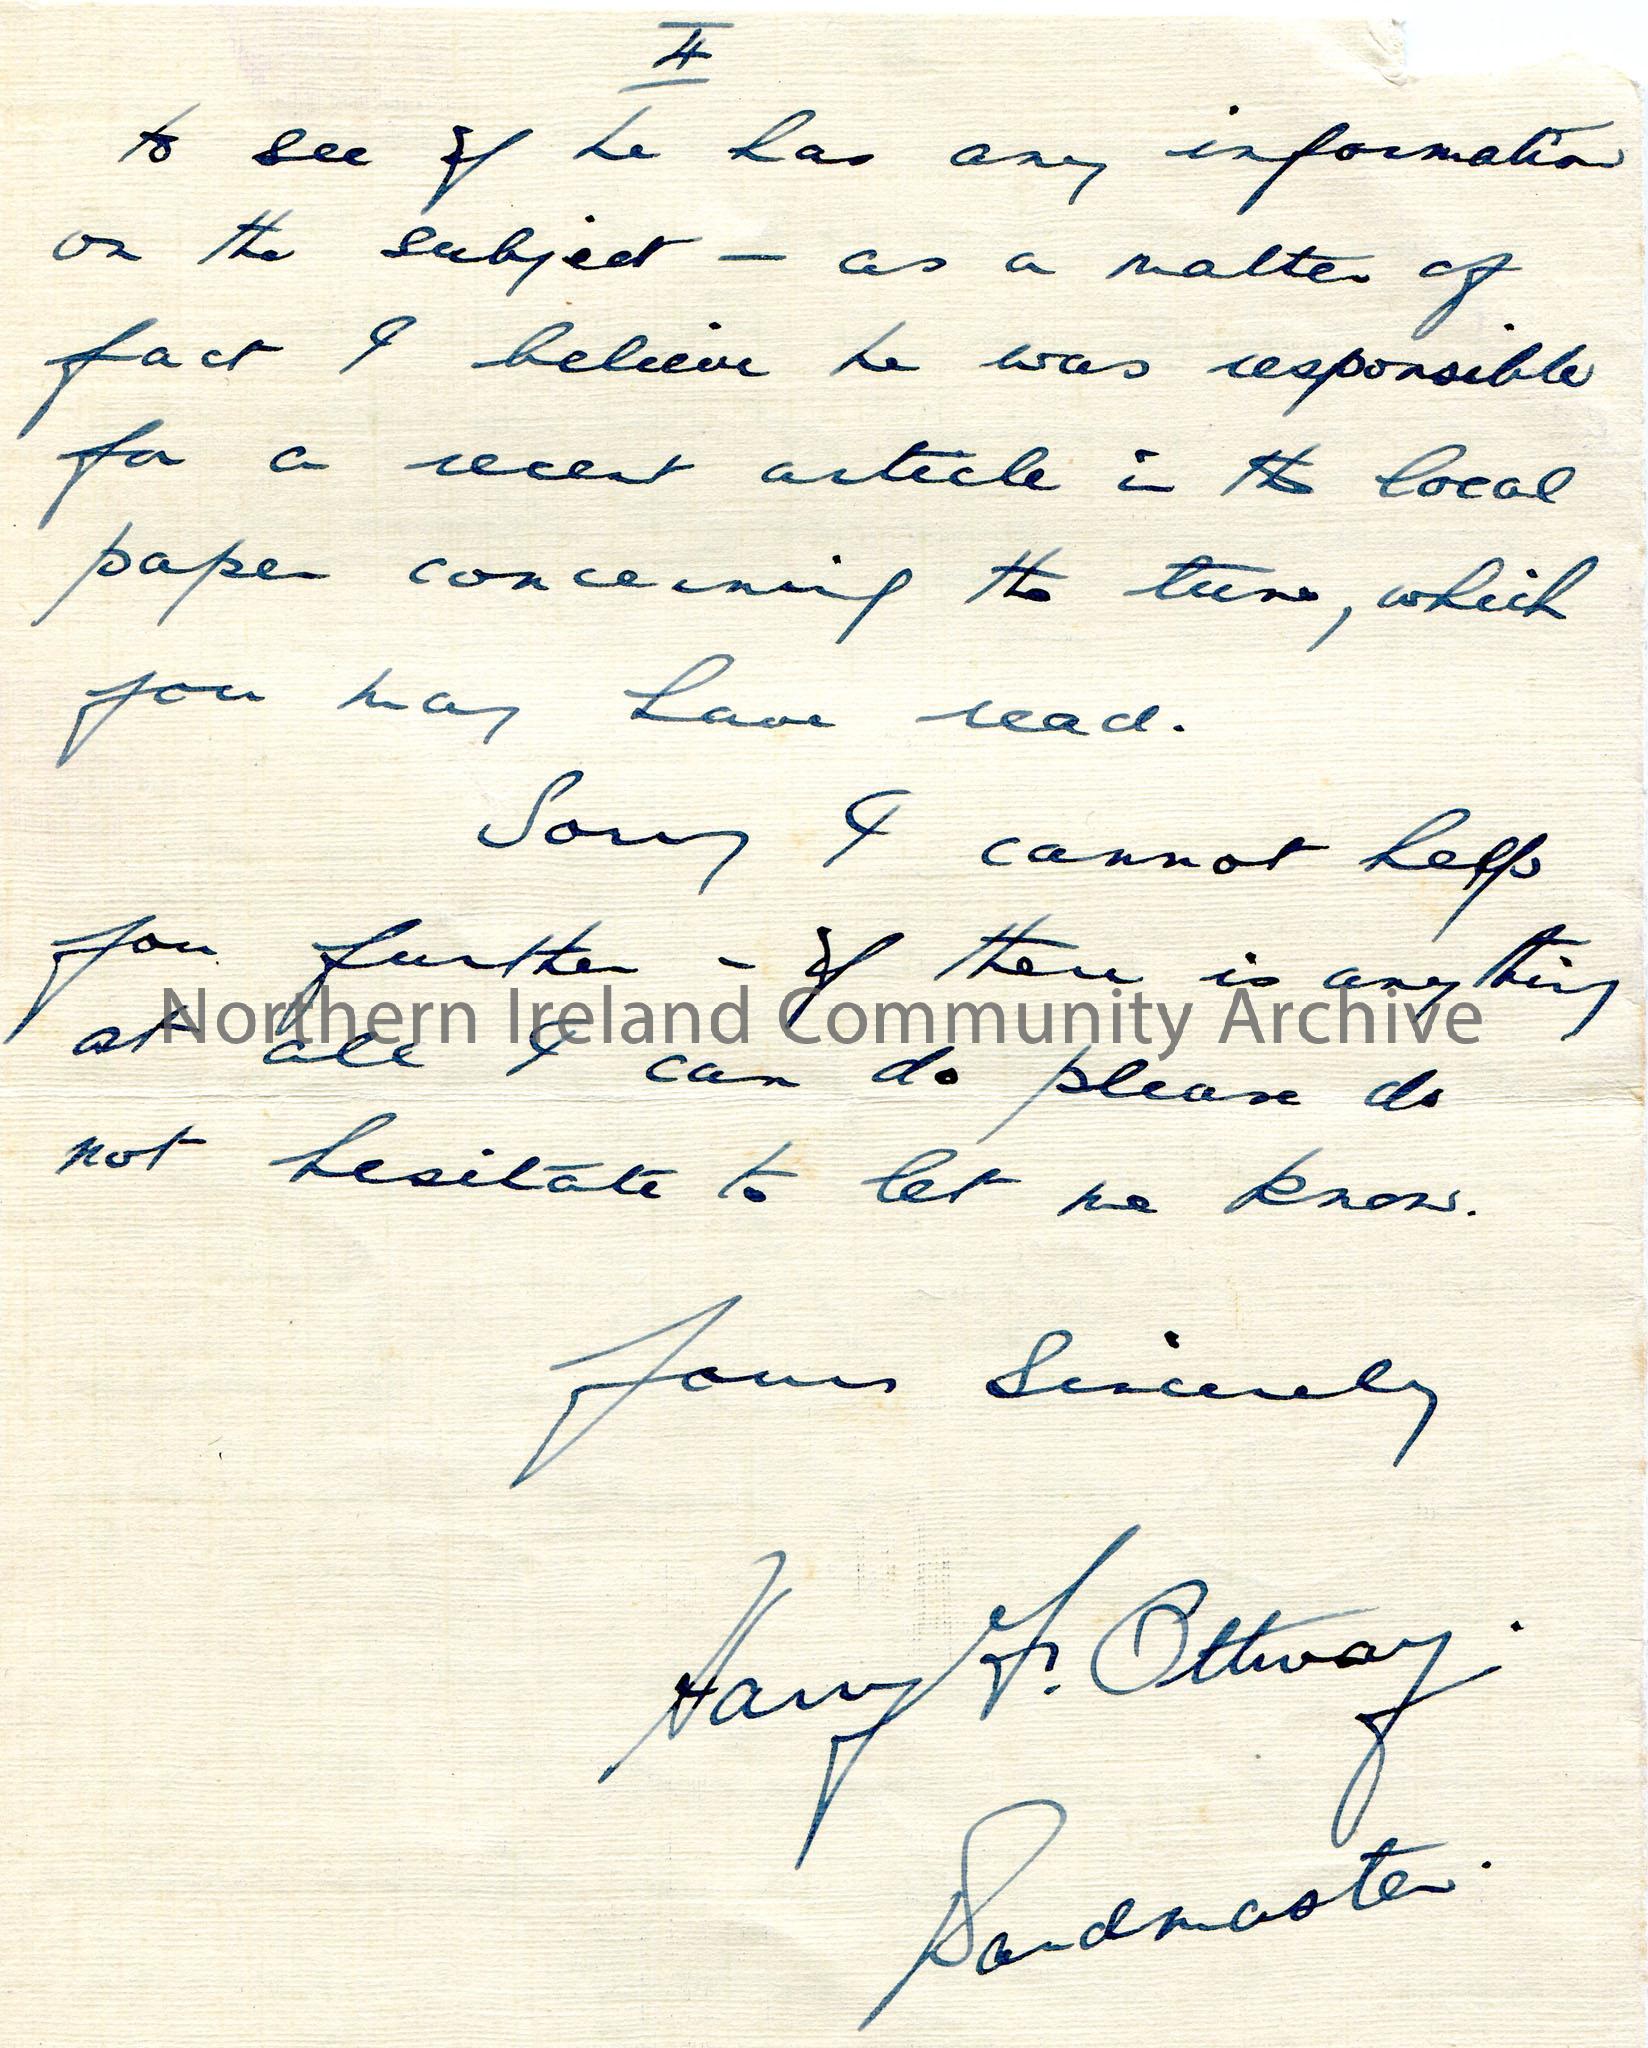 II
to see if he has any information
on the subject — as a matter of
fact I believe he was responsible
for a recent article in the local
paper concerning the tune, which
you may have read.
Sorry I cannot help
you further - if there is anything
Northern Ireland Community Archive
at all I can do please do
not hesitate to let me know.
Yours Sincerely
Harry F. Ottway.
Bandmaster.